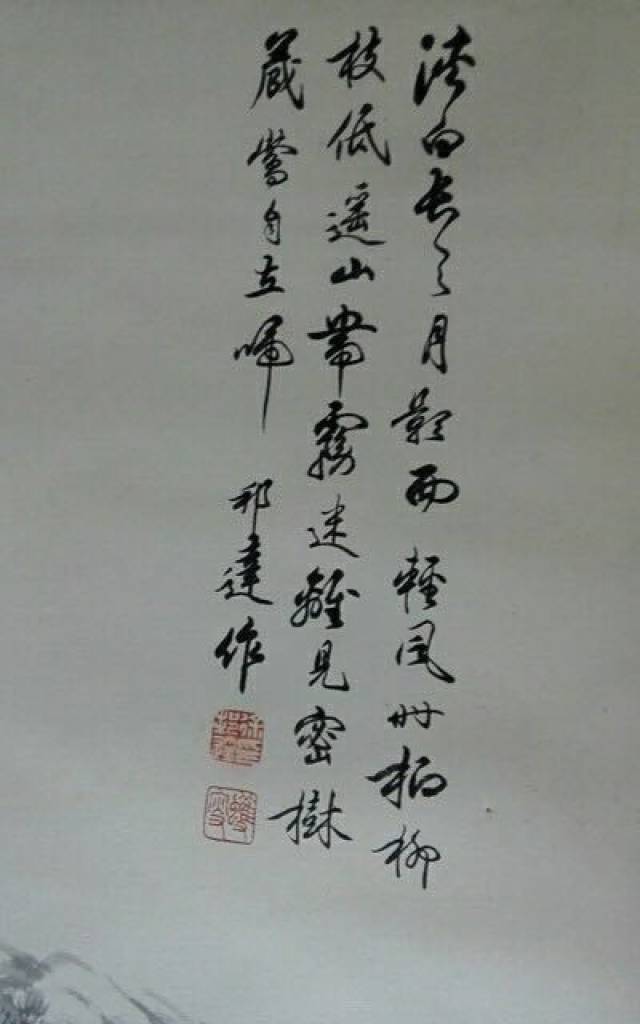 淡白長月影西輕風拍柳
枝低遥山帶霧迷離見密樹
藏鶯自在啼 邦達作